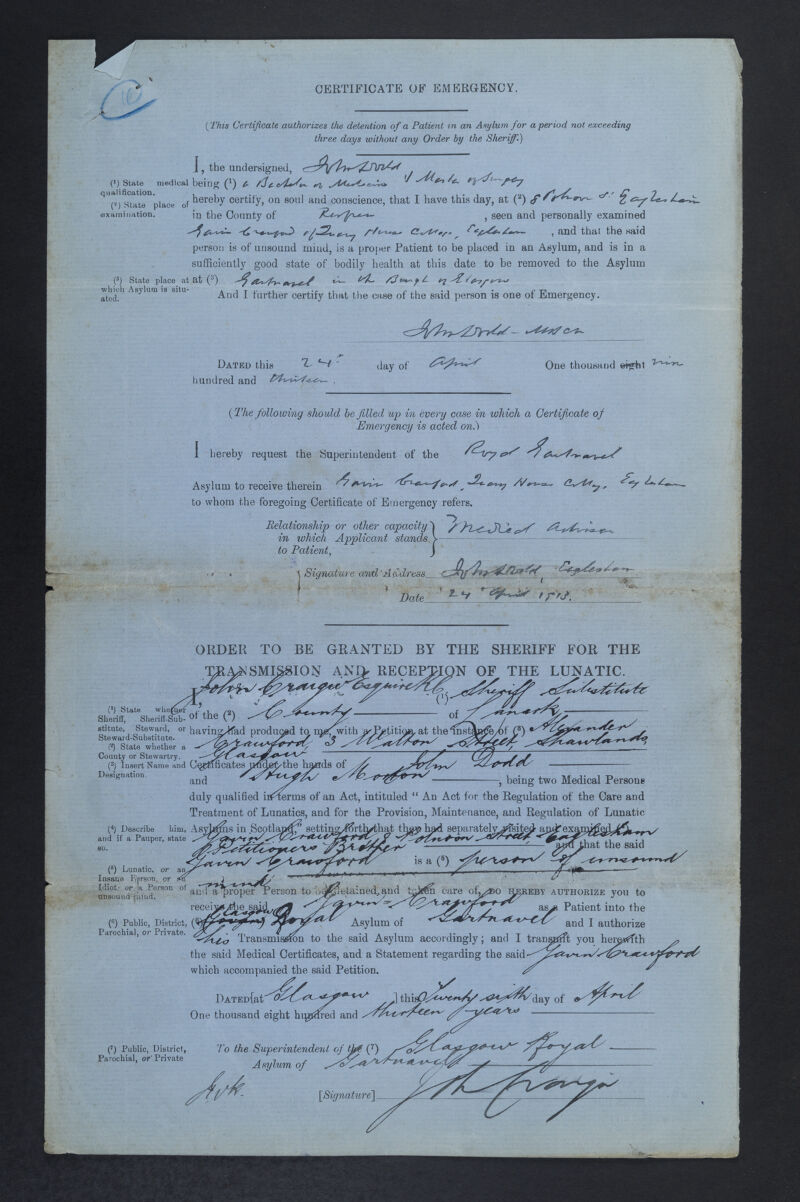 CERTIFICATE OF EMERGENCY.
(This Certificate authorizes the detention of a Patient in an Asylum for a period not exceeding
three days without any Order by the Sheriff.)
I, the undersigned, John Dodd
(1) State medical qualification.
being (1) a Bachelor of Medicine & Master of Surgery
(2) State place of examination.
hereby certify, on soul and conscience, that I have this day, at (2) 8 Polnoon St Eaglesham
in the County of Renfrew, seen and personally examined
Gavin Crawford of Ivory House Cottage, Eaglesham, and that the said
person is of unsound mind, is a proper Patient to be placed in an Asylum, and is in a
sufficiently good state of bodily health at this date to be removed to the Asylum
(3) State place at which Asylum is situated.
at (3) Gartnavel in the Burgh of Glasgow
And I further certify that the case of the said person is one of Emergency.
John Dodd
DATED this 24th day of April One thousand eight nine
hundred and thirteen.
(The following should be filled up in every case in which a Certificate of
Emergency is acted on.)
I hereby request the Superintendent of the Royal Gartnavel
Asylum to receive therein Gavin Crawford, House Cottage, Eaglesham
to whom the foregoing Certificate of Emergency refers.
Relationship or other capacity
in which Applicant stands
to Patient,
Medical Adviser
Signature and Address John Dodd, Eaglesham
Date 24 April 1913.
ORDER TO BE GRANTED BY THE SHERIFF FOR THE
TRANSMISSION AND RECEPTION OF THE LUNATIC.
I, John Craigie Esquire KC (1) Sheriff Substitute
(1) State whether Sheriff, Sheriff-Substitute, Steward, or Steward-Substitute.
of the (2) County of Lanark
having had produced to me, with a Petition at the instance of (3) Alexander
(2) State whether a County or Stewartry.
Crawford, 3 Walton Street, Shawlands
Glasgow
(3) Insert Name and Designation.
Certificates under the hands of John Dodd
and Hugh Morton, being two Medical Persons
duly qualified in terms of an Act, intituled "An Act for the Regulation of the Care and
Treatment of Lunatics, and for the Provision, Maintenance, and Regulation of Lunatic
(4) Describe him, and if a Pauper, state so.
Asylums in Scotland," setting forth that they had separately visited and examined (4)
Gavin Crawford, 8 Polnoon Street, Eaglesham
Petitioners Brother and that the said
Gavin Crawford is a (5) person of unsound
(5) Lunatic, or an Insane Person, or an Idiot, or a Person of unsound mind.
mind
and a proper Person to be detained and taken care of, DO HEREBY AUTHORIZE you to
receive the said Gavin Crawford as a Patient into the
(6) Public, District, Parochial, or Private.
(6) Glasgow Royal Asylum of Gartnavel and I authorize
his Transmission to the said Asylum accordingly; and I transmit you herewith
the said Medical Certificates, and a Statement regarding the said Gavin Crawford
which accompanied the said Petition.
DATED [at Glasgow ] this Twenty sixth day of April
One thousand eight hundred and thirteen years
(7) Public, District, Parochial, or Private
To the Superintendent of the (7) Glasgow Royal
Asylum of Gartnavel
[Signature] Craigie